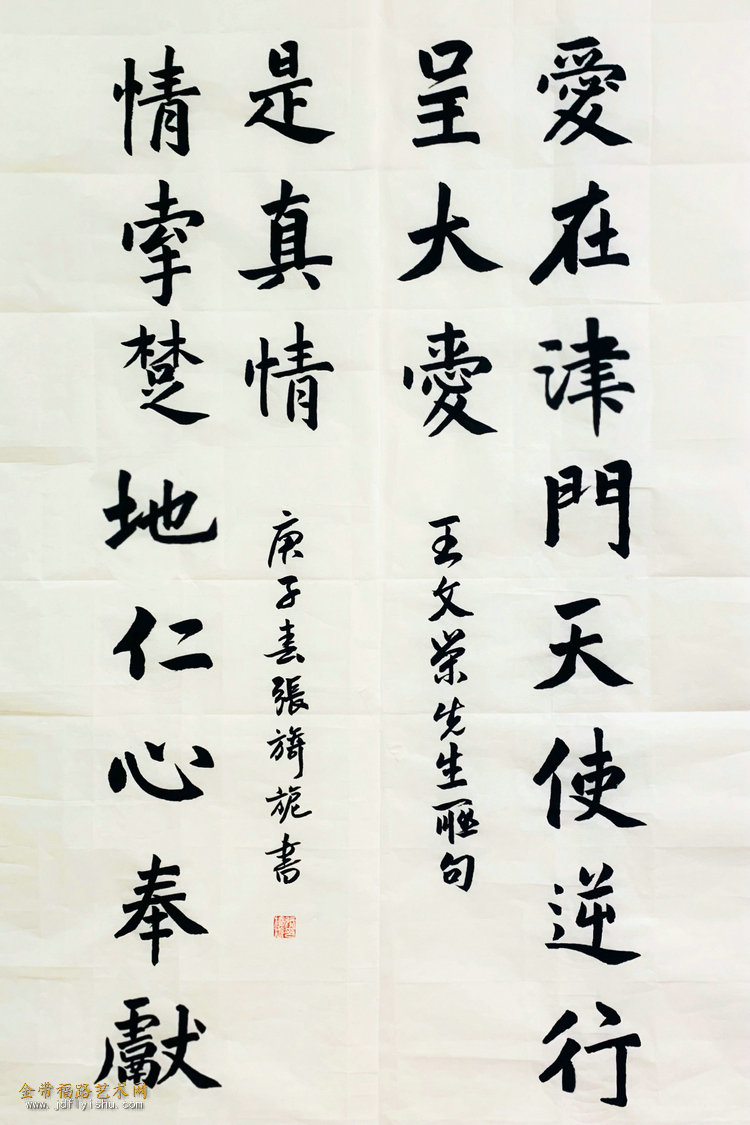 愛在津門天使逆行
呈大愛
王文榮先生聯句
情牽楚地仁心奉獻
是真情
庚子春張旖旎書
金带福路艺术网
www.jdflyishu.com